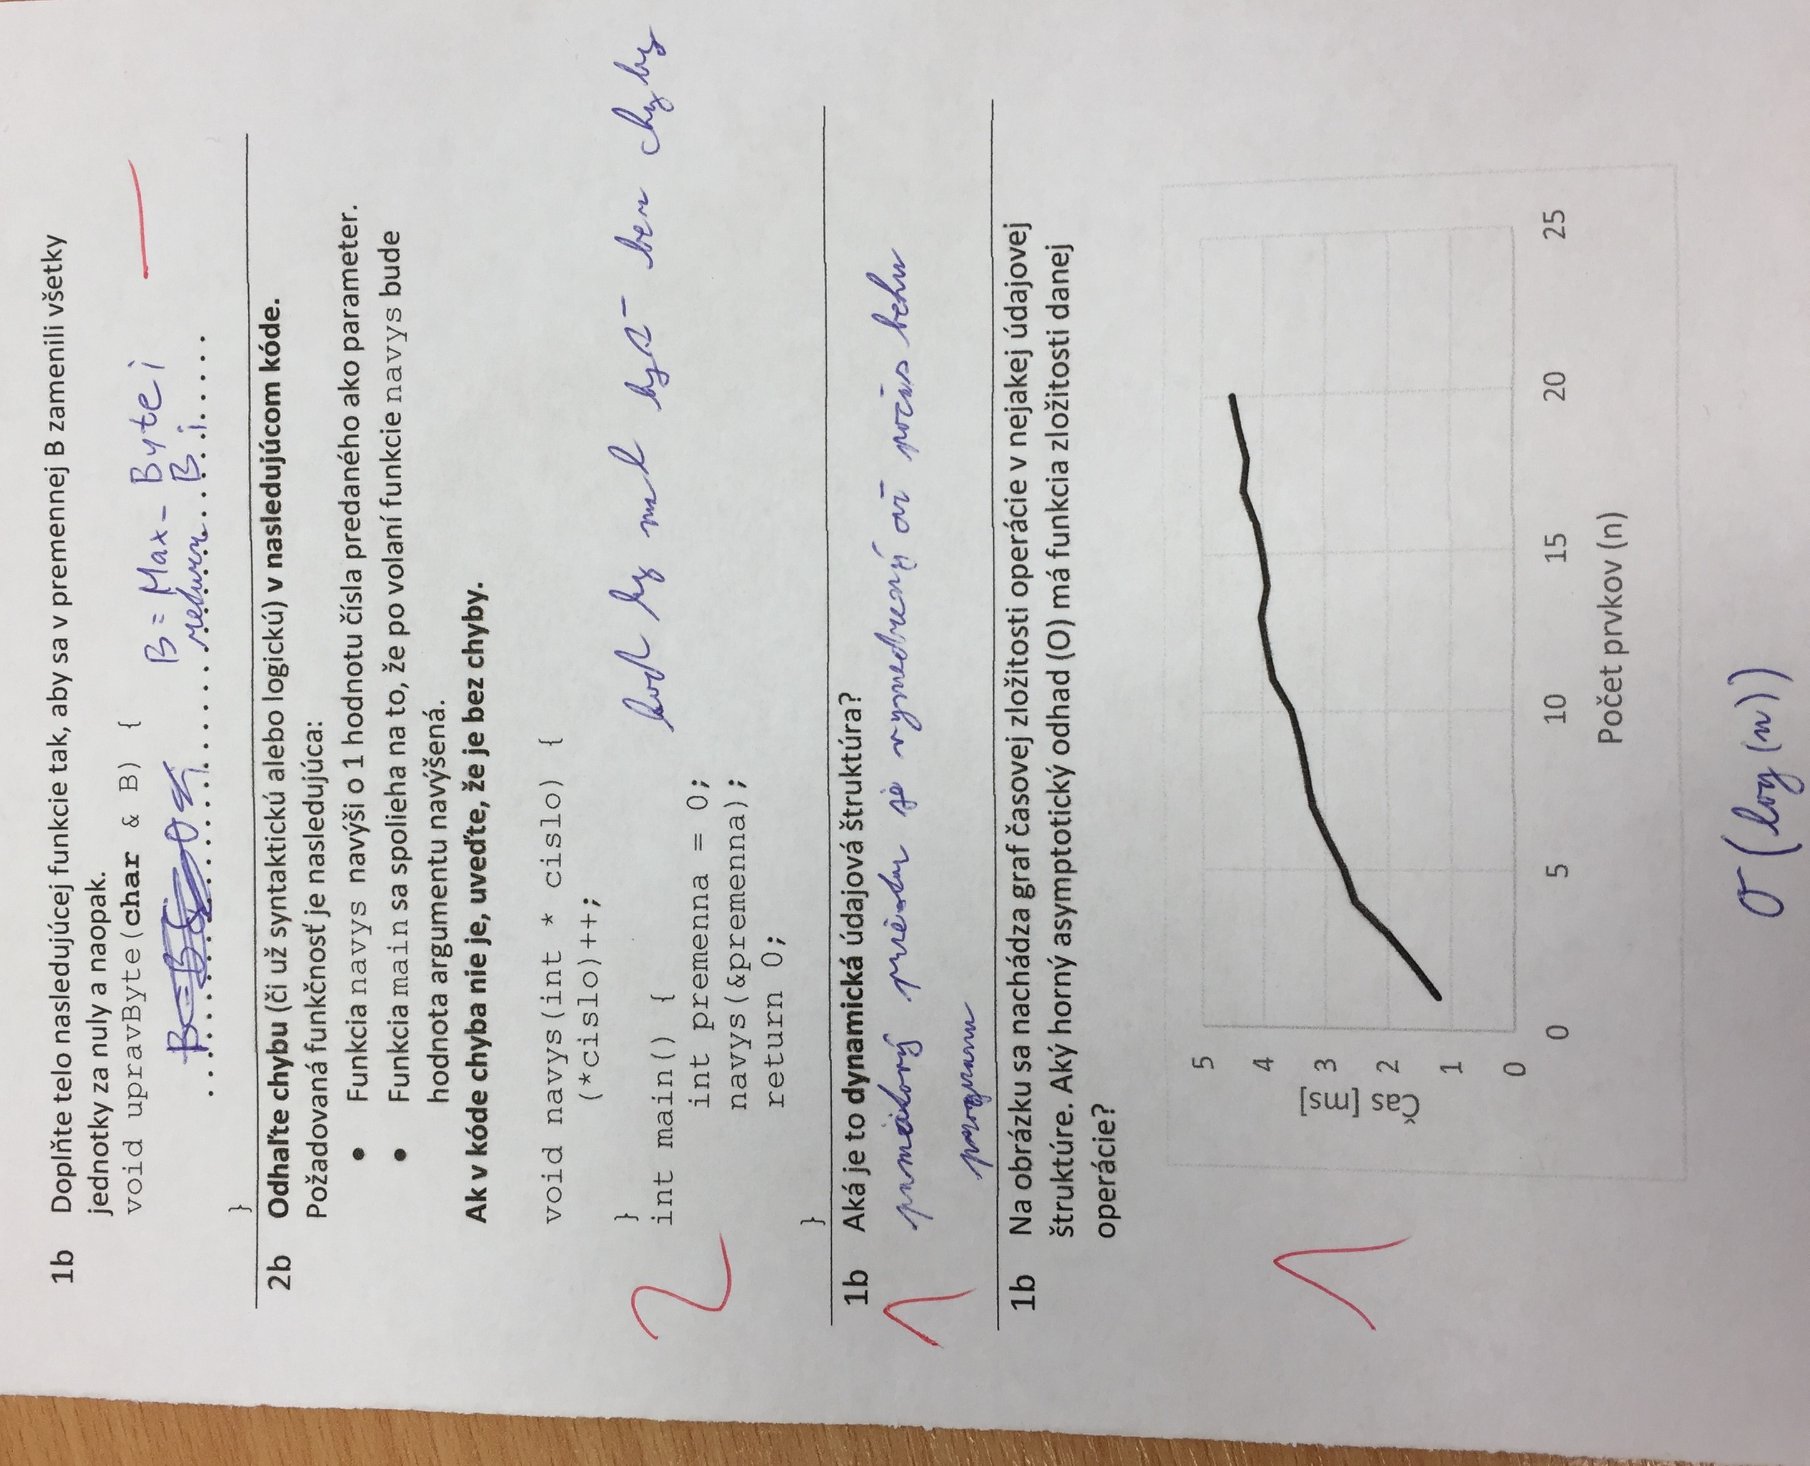 1b Doplňte telo nasledujúcej funkcie tak, aby sa v premennej B zamenili všetky
jednotky za nuly a naopak.
void upravByte(char & B) {
B = Max_Byte;
return B;
}
2b Odhaľte chybu (či už syntaktickú alebo logickú) v nasledujúcom kóde.
Požadovaná funkčnosť je nasledujúca:
• Funkcia navys navýši o 1 hodnotu čísla predaného ako parameter.
• Funkcia main sa spolieha na to, že po volaní funkcie navys bude
hodnota argumentu navýšená.
Ak v kóde chyba nie je, uveďte, že je bez chyby.
void navys(int * cislo) {
(*cislo)++;
}
kod by mal byť bez chyby
2
int main() {
int premenna = 0;
navys(&premenna);
return 0;
}
1b Aká je to dynamická údajová štruktúra?
1 pamäťový priestor je vymedzený až počas behu
programu
1b Na obrázku sa nachádza graf časovej zložitosti operácie v nejakej údajovej
štruktúre. Aký horný asymptotický odhad (O) má funkcia zložitosti danej
operácie?
1
5
4
3
2
1
0
Čas [ms]
0 5 10 15 20 25
Počet prvkov (n)
O(log(n))